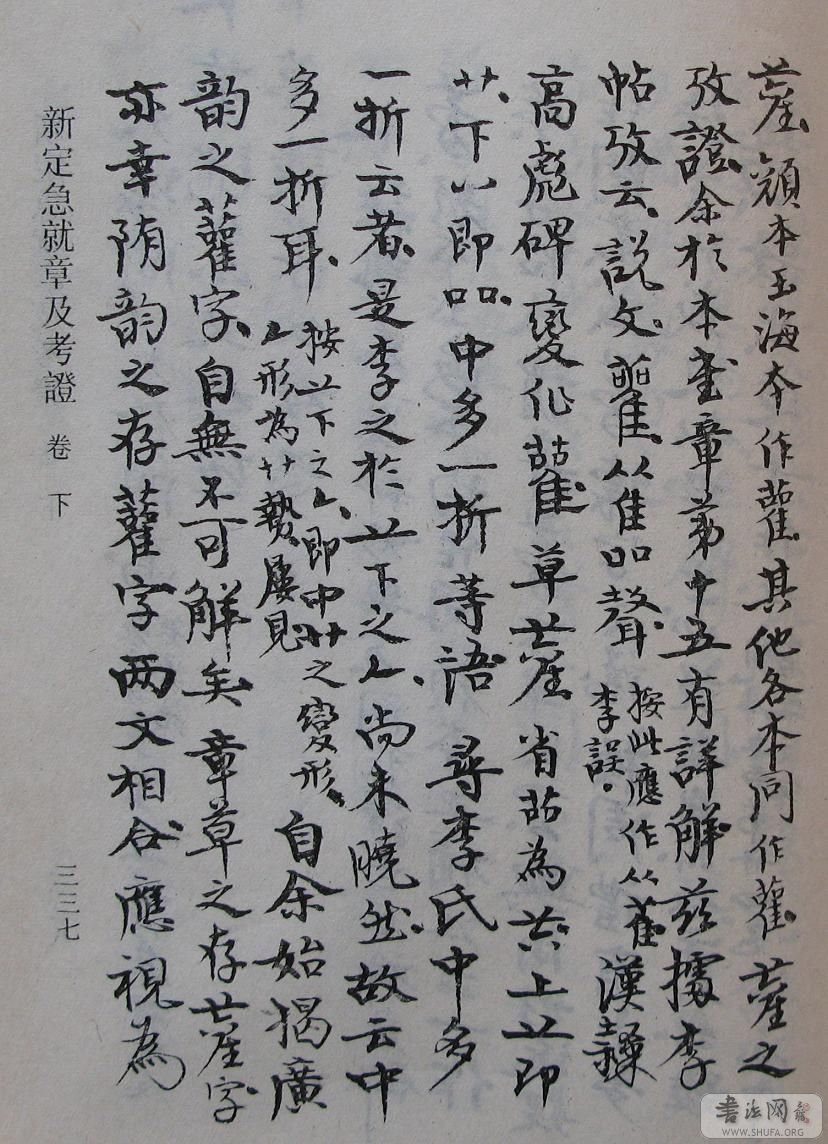 顏本玉海本作雚其他各本同作雚之
攷證余於本書章第十五有詳解茲據李
帖攷云說文雚从隹吅聲按此應作从萑李誤。漢隸
高彪碑變作草省為上即
艹下八即吅中多一折等語尋李氏中多
一折云者是李之於下之尚未曉然故云中
多一折耳按下之即中艹之變形形為艹勢屢見自余始揭廣
韵之雚字自無不可解矣章草之存字
亦幸隋韵之存雚字两文相合應視為
新定急就章及考證 卷下
三三七
書法网
WWW.SHUFA.ORG